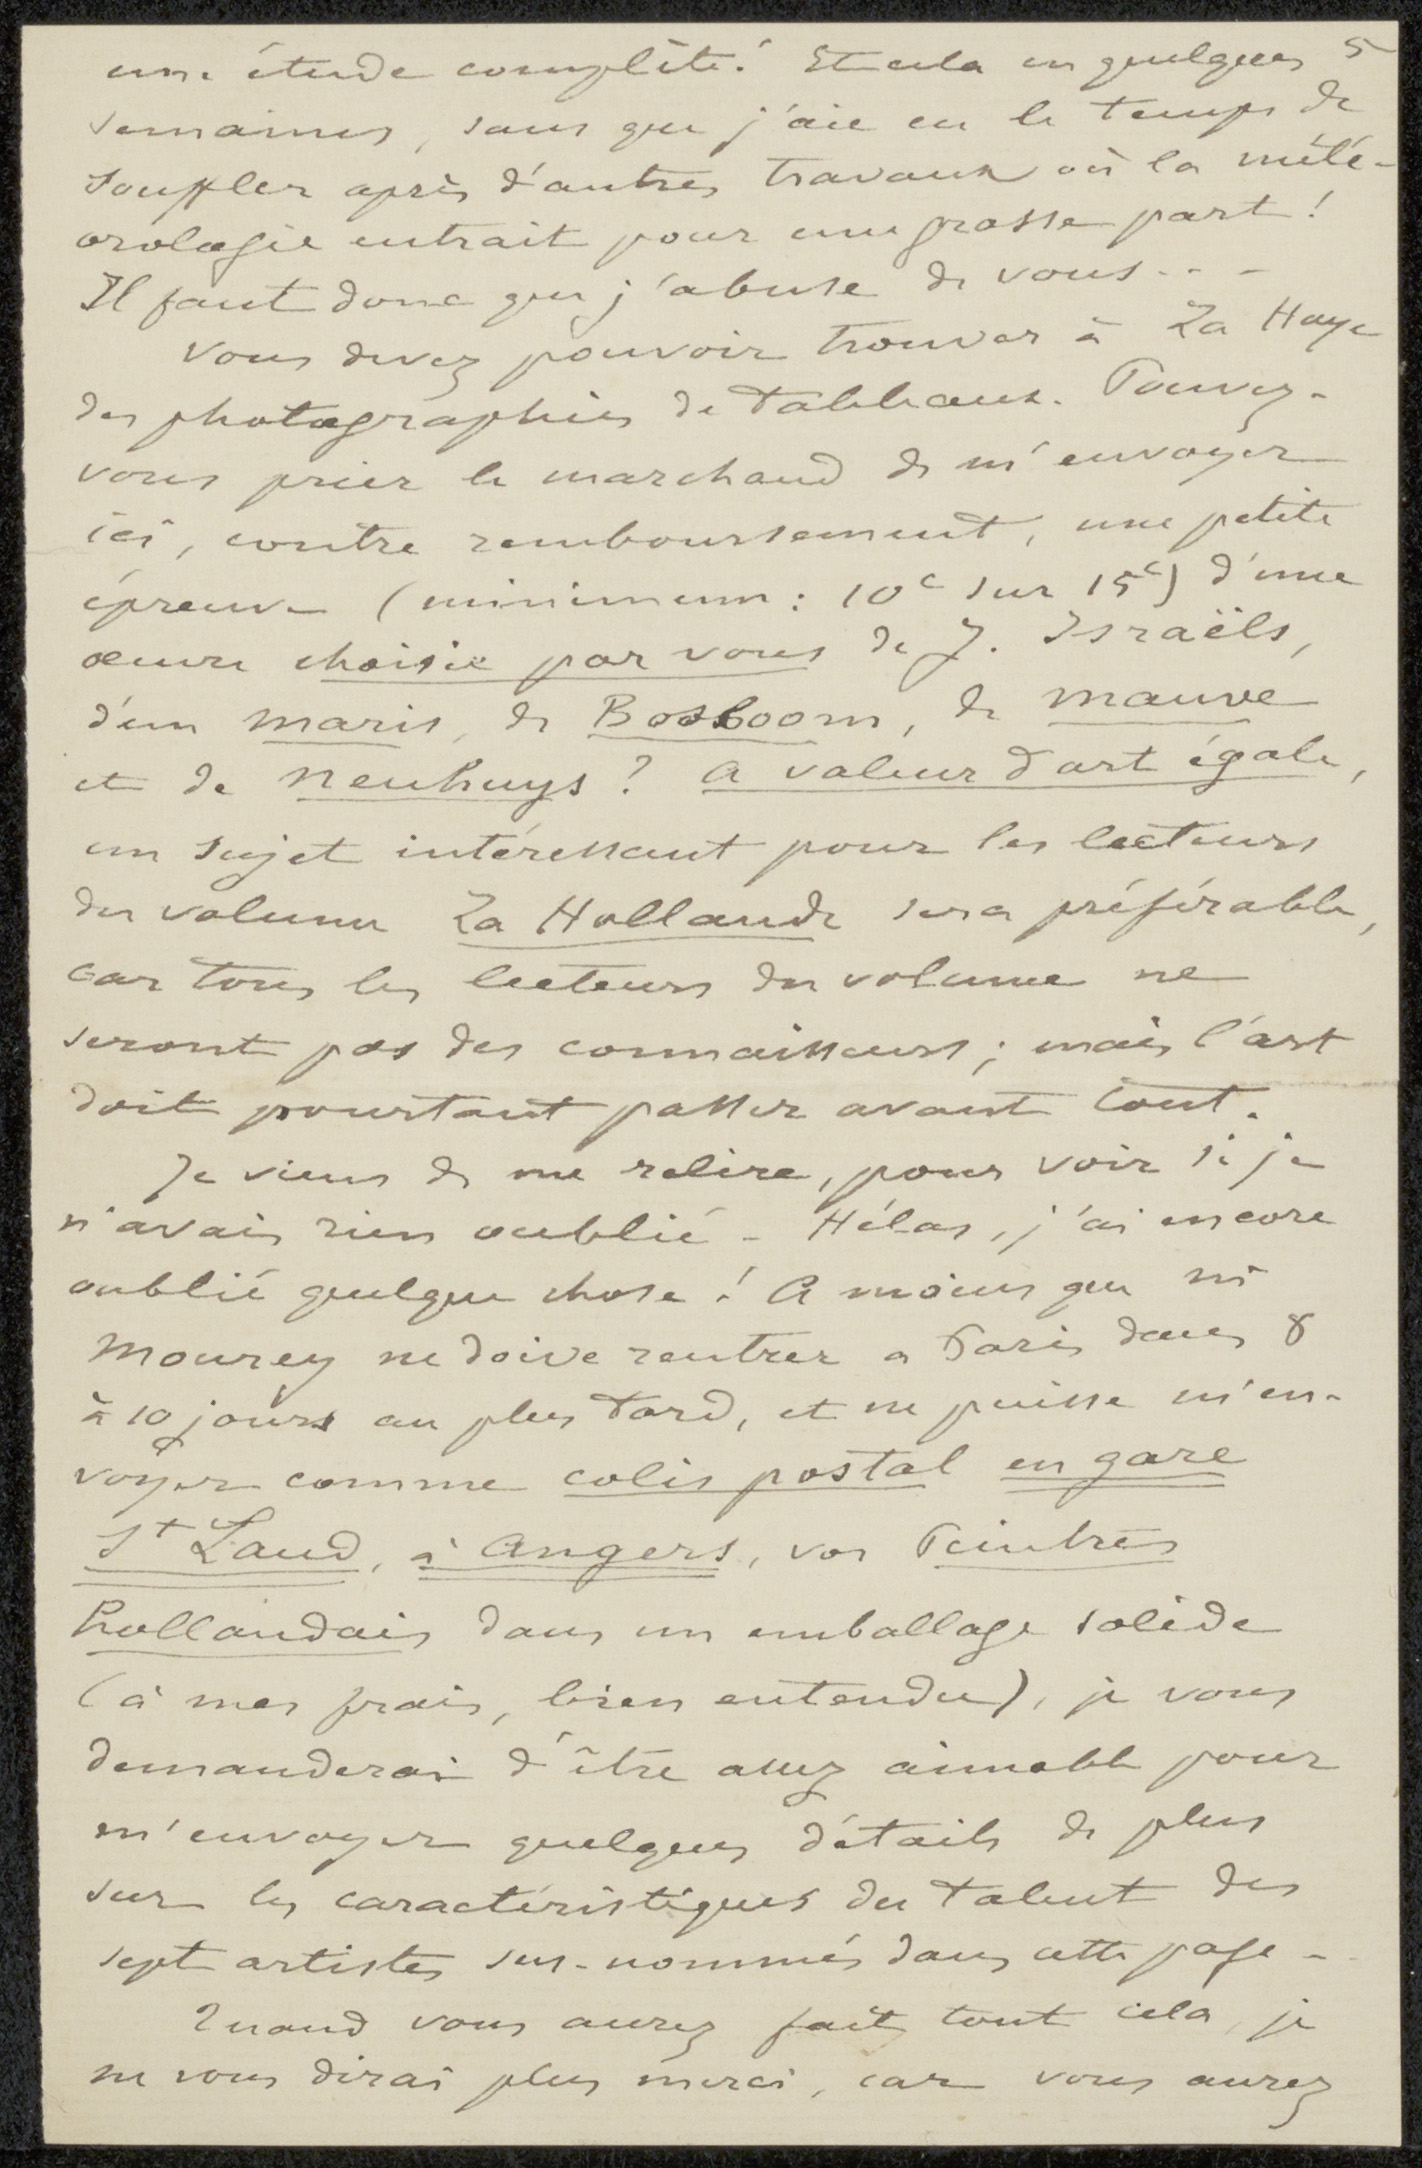 une étude complète! Et cela en quelques 5
semaines, sans que j'aie eu le temps de
souffler après d'autres travaux où la mété-
orologie entrait pour une grosse part!
Il faut donc que j'abuse de vous...
Vous devez pouvoir trouver à La Haye
des photographies de tableaux. Pouvez-
vous prier le marchand de m'envoyer
ici, contre remboursement, une petite
épreuve (minimum: 10c sur 15c) d'une
œuvre choisie par vous de J. Israëls,
d'un Maris, de Bosboom, de Mauve
et de Neuhuys? A valeur d'art égale,
un sujet intéressant pour les lecteurs
du volume La Hollande sera préférable,
car tous les lecteurs du volume ne
seront pas des connaisseurs; mais l'art
doit pourtant passer avant tout.
Je viens de me relire, pour voir si je
n'avais rien oublié - Hélas, j'ai encore
oublié quelque chose! A moins que Mr
Mourey ne doive rentrer a Paris dans 8
à 10 jours au plus tard, et ne puisse m'en-
voyer comme colis postal en gare
St Laud, à Angers, vos Peintres
hollandais dans un emballage solide
(à mes frais, bien entendu), je vous
demanderai d'être assez aimable pour
m'envoyer quelques détails de plus
sur les caractéristiques du talent des
sept artistes sus-nommés dans cette page -
Quand vous aurez fait tout cela, je
ne vous dirai plus merci, car vous aurez